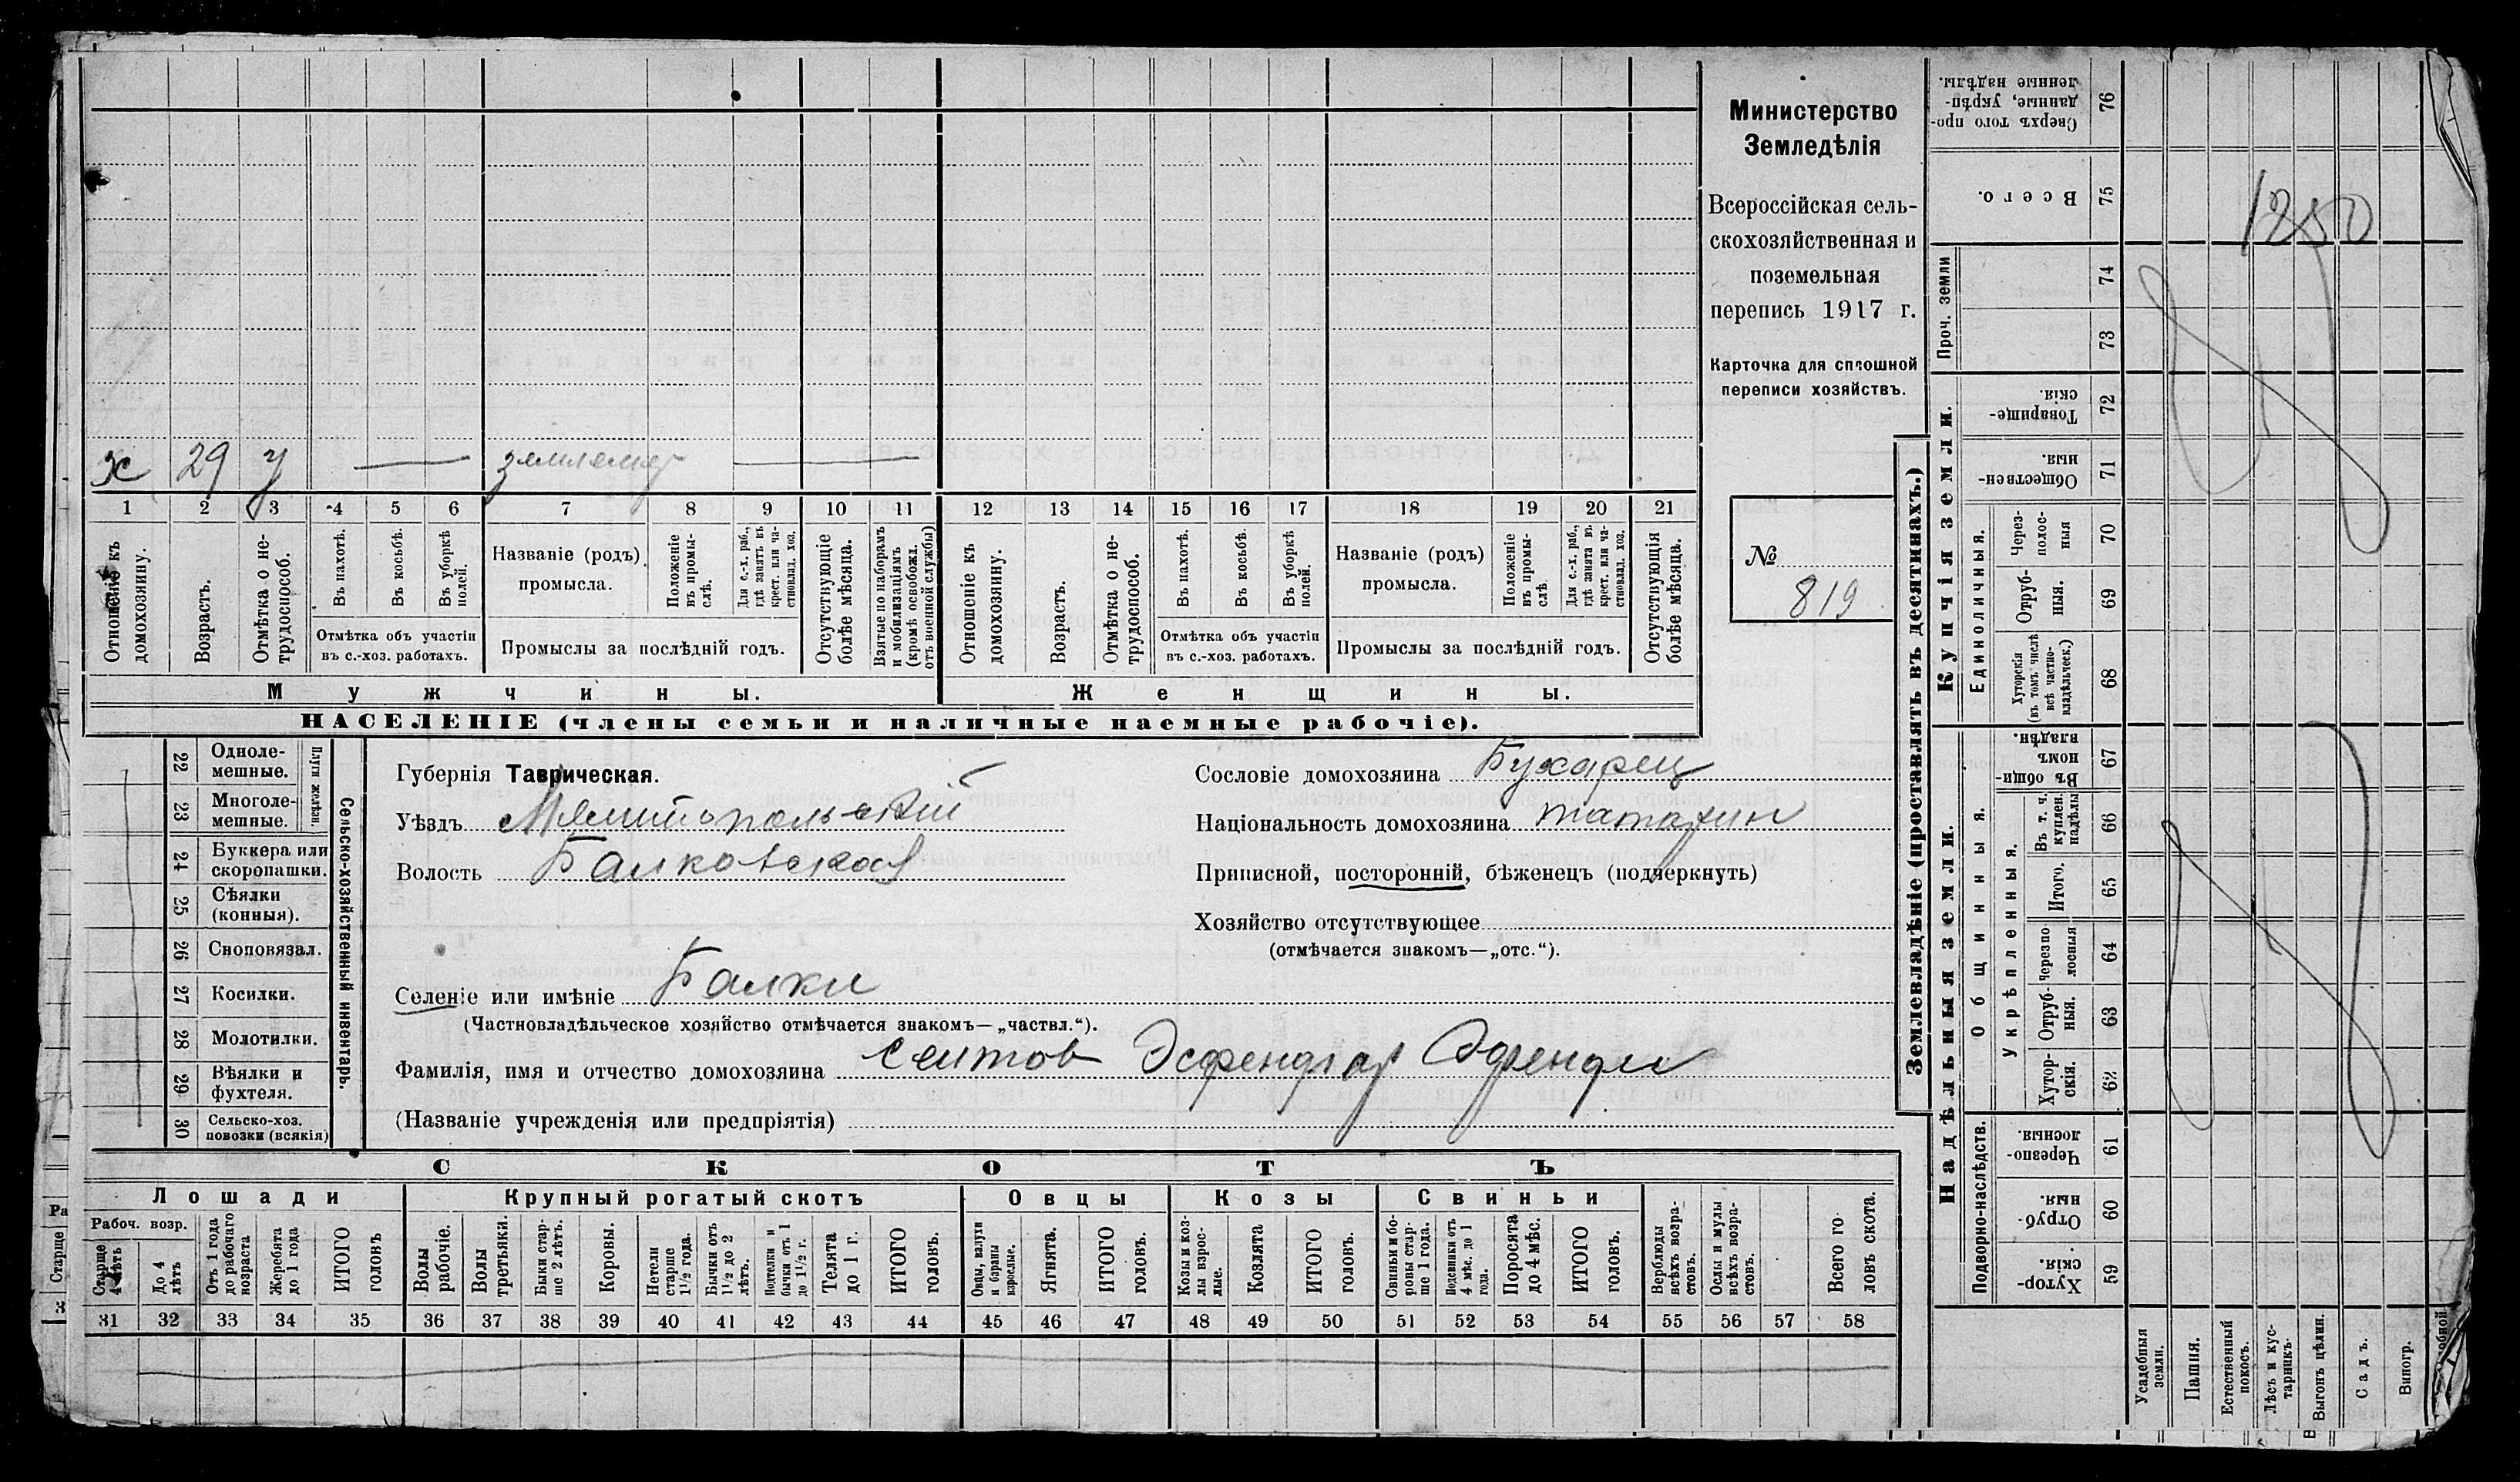 Министерство
Земледѣлія
Всероссійская сель-
скохозяйственная и
поземельная
перепись 1917 г.
Карточка для сплошной
переписи хозяйствъ.
№
819
х 29 у — землемер —
1 2 3 4 5 6 7 8 9 10 11 12 13 14 15 16 17 18 19 20 21
Отношеніе къ домохозяину.
Возрастъ.
Отмѣтка о не-трудоспособ.
Въ пахотѣ.
Въ косьбѣ.
Въ уборкѣ полей.
Отмѣтка объ участіи
въ с.-хоз. работахъ.
Названіе (родъ)
промысла.
Положеніе въ промы-слѣ.
Для с.-х. раб., гдѣ занятъ въ крест. или ча-стновлад. хоз.
Промыслы за послѣдній годъ.
Отсутствующіе болѣе мѣсяца.
Взятые по наборамъ и мобилизаціямъ (кромѣ освобожд. отъ военной службы)
Отношеніе къ домохозяину.
Возрастъ.
Отмѣтка о не-трудоспособ.
Въ пахотѣ.
Въ косьбѣ.
Въ уборкѣ полей.
Отмѣтка объ участіи
въ с.-хоз. работахъ.
Названіе (родъ)
промысла.
Положеніе въ промы-слѣ.
Для с.-х. раб., гдѣ занята въ крест. или ча-стновлад. хоз.
Промыслы за послѣдній годъ.
Отсутствующія болѣе мѣсяца.
Мужчины.
Женщины.
НАСЕЛЕНІЕ (члены семьи и наличные наемные рабочіе).
Сельско-хозяйственный инвентарь.
Плуги желѣзн.
22 Одноле-мешные.
23 Многоле-мешные.
24 Буккера или скоропашки.
25 Сѣялки (конныя).
26 Сноповязал.
27 Косилки.
28 Молотилки.
29 Вѣялки и фухтеля.
30 Сельско-хоз. повозки (всякія)
Губернія Таврическая.
Уѣздъ Мелитопольский
Волость Балковская
Селеніе или имѣніе Балки
(Частновладѣльческое хозяйство отмѣчается знакомъ—„частвл.“).
Фамилія, имя и отчество домохозяина Сеитов Эсфендиар Эфенди
(Названіе учрежденія или предпріятія)
Сословіе домохозяина Бухарец
Національность домохозяина татарин
Приписной, посторонній, бѣженецъ (подчеркнуть)
Хозяйство отсутствующее
(отмѣчается знакомъ—„отс.“).
СКОТЪ
Лошади
Крупный рогатый скотъ
Овцы
Козы
Свиньи
Рабоч. возр.
Старше 4 лѣтъ
До 4 лѣтъ
Отъ 1 года до рабочаго возраста
Жеребята до 1 года
ИТОГО головъ
Волы рабочіе.
Волы третьяки.
Быки стар-ше 2 лѣтъ.
Коровы.
Нетели старше 1½ года.
Бычки отъ 1½ до 2 лѣтъ.
Подтелки и бычки отъ 1 до 1½ г.
Телята до 1 г.
ИТОГО головъ.
Овцы, валухи и бараны взрослые.
Ягнята.
ИТОГО головъ.
Козы и коз-лы взрос-лые.
Козлята
ИТОГО головъ.
Свиньи и бо-ровы стар-ше 1 года.
Подсвинки отъ 4 мѣс. до 1 года.
Поросята до 4 мѣс.
ИТОГО головъ.
Верблюды всѣхъ возра-стовъ.
Ослы и мулы всѣхъ возра-стовъ.
Всего го ловъ скота.
31 32 33 34 35 36 37 38 39 40 41 42 43 44 45 46 47 48 49 50 51 52 53 54 55 56 57 58
Землевладѣніе (проставлять въ десятинахъ.)
Купчія земли.
Надѣльныя земли.
Сверхъ того про-данные, укрѣп-ленные надѣлы. 76
Всего. 75
1250
Проч. земли 74
73
Товарище-скія. 72
Обществен-ныя. 71
Единоличныя.
Через-полос-ныя 70
Отруб-ныя. 69
Хуторскія (въ томъ числѣ всѣ частно-владѣльческ.) 68
Общинныя.
Въ общи-номъ владѣн. 67
Укрѣпленныя.
Въ т. ч. куплен. надѣлы 66
Итого. 65
Черезпо-лосныя 64
Отруб-ныя. 63
Хутор-скія. 62
Подворно-наслѣдств.
Черезпо-лосныя. 61
Отруб-ныя. 60
Хутор-скія. 59
Усадебныя земли.
Пашня.
Естественный покосъ.
Лѣсъ и кус-тарникъ.
Выгонъ цѣлин.
Садъ.
Виногр.